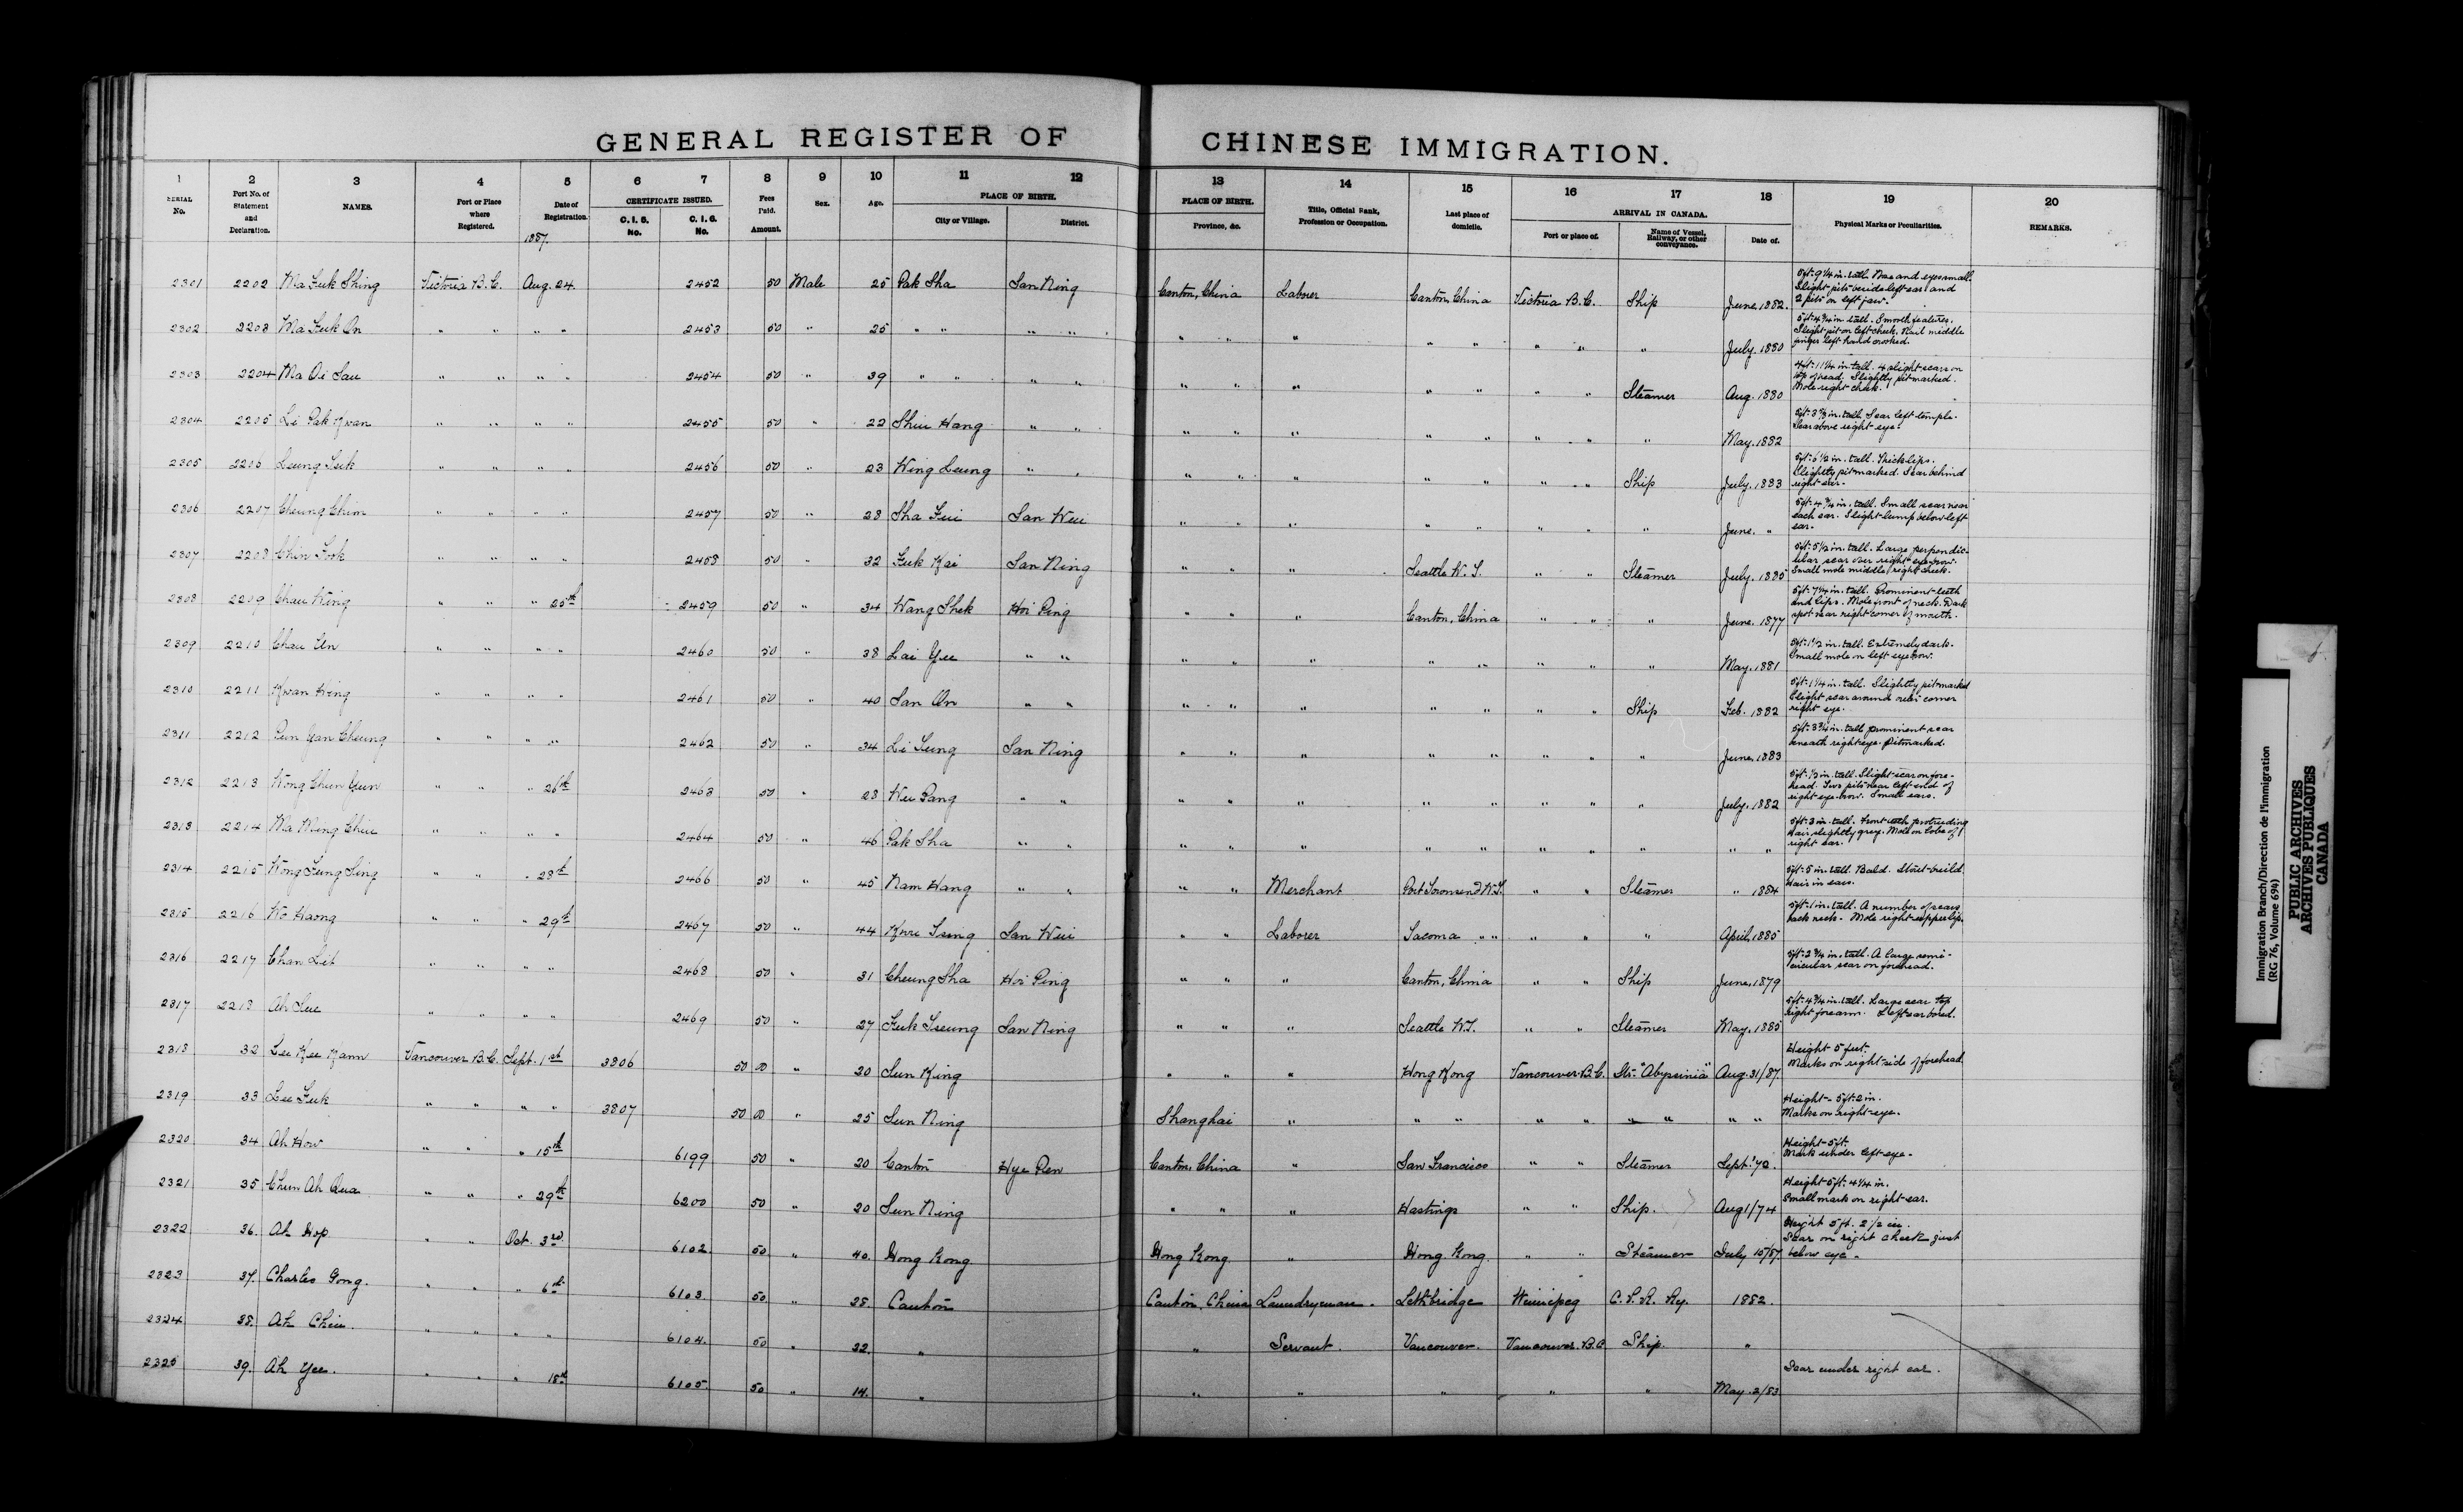 GENERAL REGISTER OF CHINESE IMMIGRATION.
1 2 3 4 5 6 7 8 9 10 11 12 13 14 15 16 17 18 19 20
SERIAL No. Port No. of Statement and Declaration. NAMES. Port or Place where Registered. Date of Registration. CERTIFICATE ISSUED. C. I. 5. No. C. I. 6. No. Fees Paid. Amount. Sex. Age. PLACE OF BIRTH. City or Village. District. PLACE OF BIRTH. Province, &c. Title, Official Rank, Profession or Occupation. Last place of domicile. ARRIVAL IN CANADA. Port or place of. Name of Vessel, Railway, or other conveyance. Date of. Physical Marks or Peculiarities. REMARKS.
1887.
2301 2202 Ma Fuk Shing Victoria B.C. Aug. 24 2452 50 Male 25 Pak Sha San Ning Canton, China Laborer Canton, China Victoria B.C. Ship June, 1882 5ft. 9 1/4 in. tall. Nose and eyes small. Slight pits beside left ear and 2 pits on left jaw.
2302 2203 Ma Fuk On " " " " 2453 50 " 25 " " " " " " " " " " " " July. 1880 5ft. 4 3/4 in tall. Smooth features. Slight pit on left cheek. Nail middle finger left hand crooked.
2303 2204 Ma Oi Sau " " " " 2454 50 " 39 " " " " " " " " " " " Steamer Aug. 1880 4ft. 11 1/4 in. tall. 4 slight scars on top of head. Slightly pitmarked. Mole right cheek.
2304 2205 Li Pak Kwan " " " " 2455 50 " 22 Shui Hang " " " " " " " " " " May. 1882 5ft. 3 in. tall. Scar left temple. Scar above right eye.
2305 2206 Leung Suk " " " " 2456 50 " 23 Wing Leung " " " " " " " " " Ship July. 1883 5ft. 6 1/2 in. tall. Thick lips. Slightly pitmarked. Scar behind right ear.
2306 2207 Cheung Chim " " " " 2457 50 " 28 Sha Fui San Wui " " " " " " " " June. " 5ft. 4 3/4 in. tall. Small scar near each ear. Slight lump below left ear.
2307 2208 Chin Sook " " " " 2458 50 " 32 Fuk Kai San Ning " " " Seattle W. T. " " Steamer July. 1885 5ft. 5 1/2 in. tall. Large perpendicular scar over right eyebrow. Small mole middle right cheek.
2308 2209 Chau King " " " 25th 2459 50 " 34 Wang Shek Hoi Ping " " " Canton, China " " " June. 1877 5ft. 7 1/4 in. tall. Prominent teeth and lips. Mole front of neck. Dark spot near right corner of mouth.
2309 2210 Chau Un " " " " 2460 50 " 38 Lai Yee " " " " " " " " " " May. 1881 5ft. 1 1/2 in. tall. Extremely dark. Small mole on left eyebrow.
2310 2211 Kwan Hing " " " " 2461 50 " 40 San On " " " " " " " " " Ship Feb. 1882 5ft. 1 1/4 in. tall. Slightly pitmarked Slight scar around outer corner right eye.
2311 2212 Pun Yan Cheung " " " " 2462 50 " 34 Li Sung San Ning " " " " " " " " June, 1883 5ft. 3 3/4 in. tall prominent scar beneath right eye. Pitmarked.
2312 2213 Wong Chun Yun " " " 26th 2463 50 " 23 Wui Pang " " " " " " " " " " July. 1882 5ft. 1/2 in. tall. Slight scar on forehead. Two pits near left end of right eyebrow. Small ears.
2313 2214 Ma Ming Chiu " " " " 2464 50 " 46 Pak Sha " " " " " " " " " " " " 5ft. 3 in. tall. Front teeth protruding Hair slightly grey. Mole on lobe of right ear.
2314 2215 Wong Fung Sing " " " 28th 2466 50 " 45 Nam Hang " " " " Merchant Port Townsend W.T. " " Steamer " 1884 5ft. 5 in. tall. Bald. Stout build Hair in ears.
2315 2216 Ko Haong " " " 29th 2467 50 " 44 Kwu Tsung San Wui " " Laborer Tacoma " " " " " April, 1885 5ft. 1 in. tall. A number of scars back neck. Mole right upper lip.
2316 2217 Chan Lit " " " " 2468 50 " 31 Cheung Sha Hoi Ping " " " Canton, China " " Ship June, 1879 5ft. 2 3/4 in. tall. A large semicircular scar on forehead.
2317 2218 Ah Sue " " " " 2469 50 " 27 Fuk Tseung San Ning " " " Seattle W.T. " " Steamer May, 1885 5ft. 4 3/4 in. tall. Large scar top right forearm. Left ear bored.
2318 32 Lee Kee Kann Vancouver B.C. Sept. 1st 3806 50 00 " 20 Sun King " " " Hong Kong Vancouver B.C. Str. "Abyssinia" Aug. 31/87 Height 5 feet. Marks on right side of forehead
2319 33 Lee Suk " " " " 3807 50 00 " 25 Sun Ning Shanghai " " " " " " " " " Height - 5 ft. 2 in. Marks on right eye.
2320 34 Ah How " " " 15th 6199 50 " 20 Canton Hye Pen Canton, China " San Francisco " " Steamer Height - 5 ft. Mark under left eye.
2321 35 Chun Ah Qua " " " 29th 6200 50 " 20 Sun Ning " " " Hastings " " Ship. Aug 1/74 Height 5 ft. 4 1/4 in. Small mark on right ear.
2322 36. Ah Hop " " Oct. 3rd 6102. 50 " 40. Hong Kong Hong Kong " Hong Kong. " " Steamer July 10/87. Height 5 ft. 2 1/2 in. Scar on right cheek just below eye.
2323 37. Charles Gong. " " " 6th 6103. 50 " 28. Canton Canton, China Laundryman. Lethbridge Winnipeg C. P. R. Ry. 1882.
2324 38. Ah Chin. " " " " 6104. 50 " 22. " " Servant. Vancouver. Vancouver. B.C Ship. "
2325 39. Ah Yee. " " " 18th 6105. 50 " 14. " " " " " " May. 2/83 Scar under right ear.
Immigration Branch/Direction de l'immigration
(RG 76, Volume 694)
PUBLIC ARCHIVES
ARCHIVES PUBLIQUES
CANADA